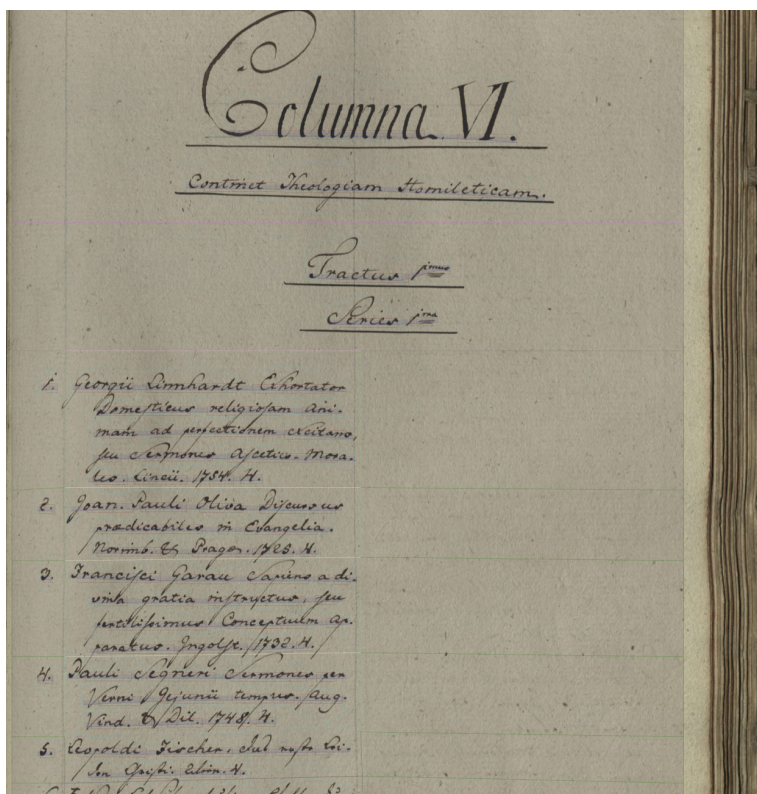 Columna VI.
Continet Theologiam Homileticam.
Tractus 1mus
Series 1ma
1. Georgii Linnhardt Exhortator
Domesticus religiosam Ani-
mam ad perfectionem excitans,
seu Sermones Ascetico-Mora-
les. Lincii. 1754. 4.
2. Joan. Pauli Oliva Discursus
prædicabiles in Evangelia.
Norimb. & Pragæ. 1725. 4.
3. Francisci Garau Sapiens a di-
vina gratia instructus, seu
fertilissimus Conceptuum Ap-
paratus. Ingolst. 1732. 4.
4. Pauli Segneri Sermones per
Verni Jejunii tempus. Aug.
Vind. & Dil. 1748. 4.
5. Leopoldi Fischer, das
4.